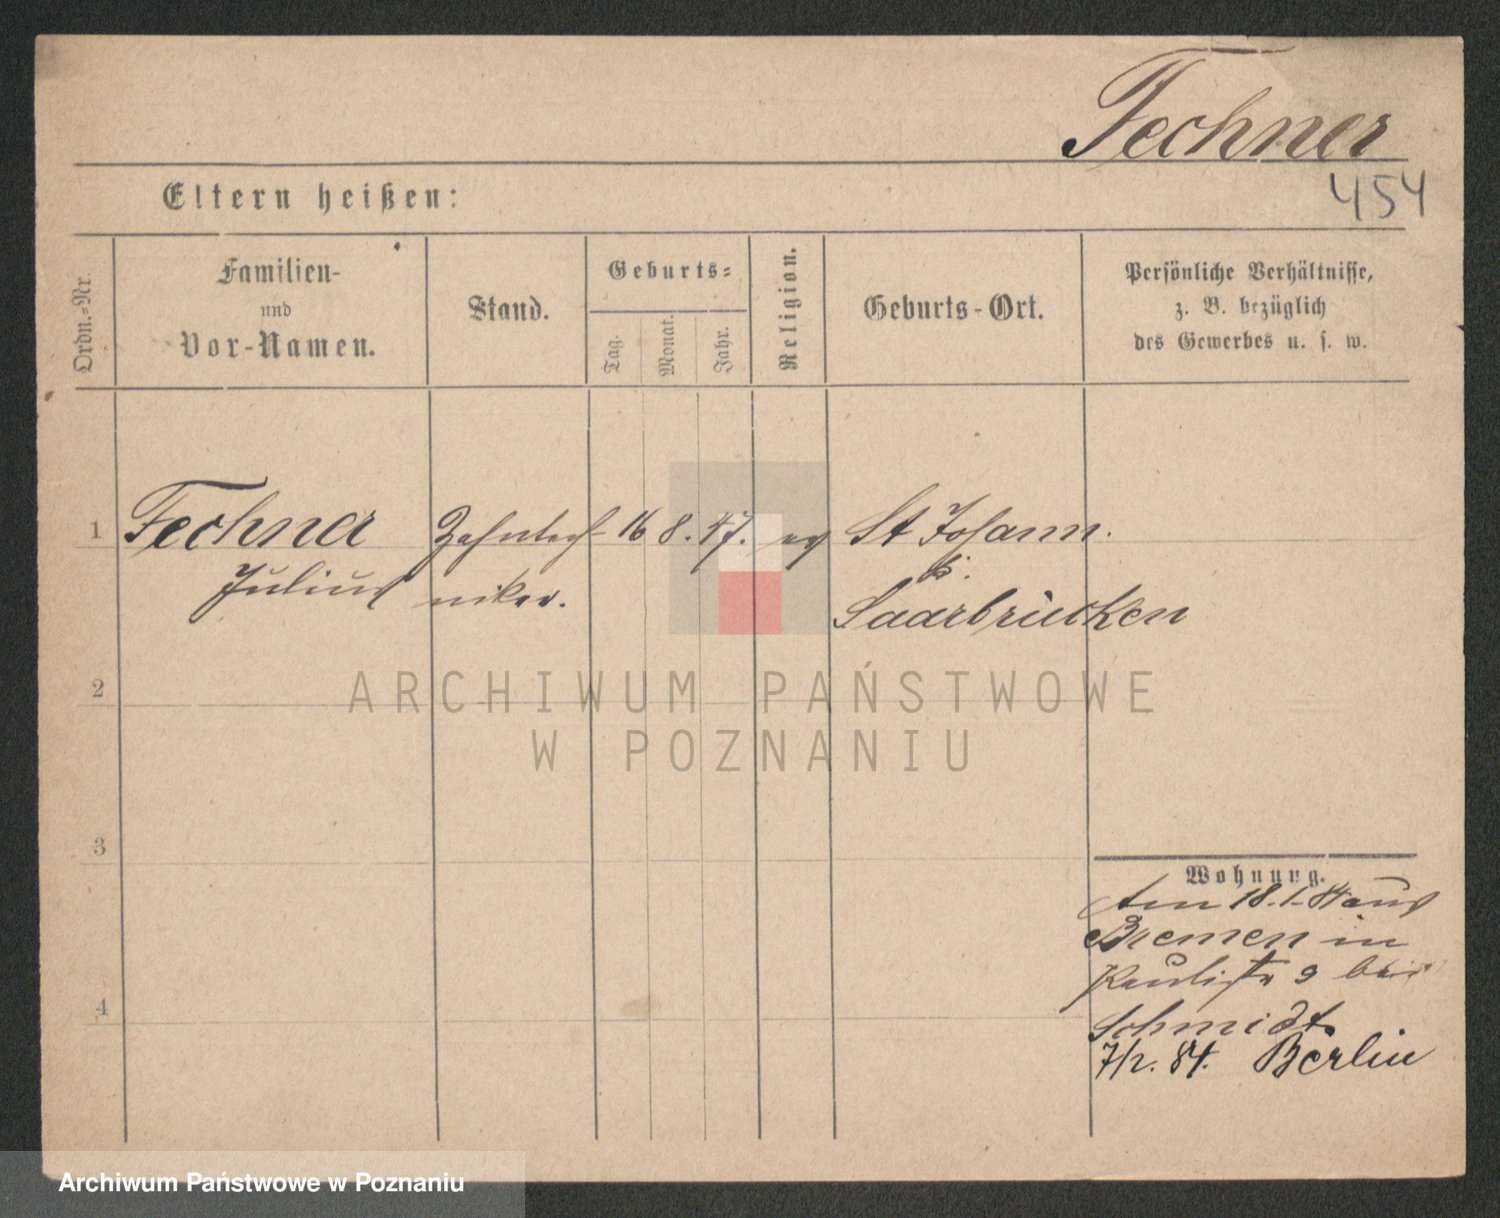 Fechner
454
Eltern heißen:
Ordn.-Nr.
Familien-
und
Vor-Namen.
Stand.
Geburts-
Tag.
Monat.
Jahr.
Religion.
Geburts-Ort.
Persönliche Verhältnisse,
z. B. bezüglich
des Gewerbes u. s. w.
1 Fechner Zahntech 16 8. 47. ev St Johann.
Julius niker. b.
Saarbrücken
2
ARCHIWUM PAŃSTWOWE
W POZNANIU
3
Wohnung.
Am 18.1. 84 aus
Bremen in
Paulistr 9 bei
4
Schmidt.
7/2. 84. Berlin
Archiwum Państwowe w Poznaniu